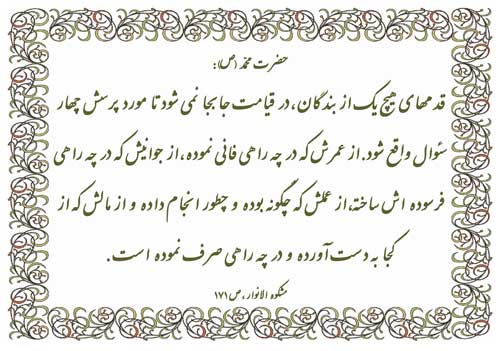 حضرت محمد (ص):
قدمهای هیچ یک از بندگان، در قیامت جابجا نمی شود تا مورد پرسش چهار
سؤال واقع شود. از عمرش که در چه راهی فانی نموده، از جوانیش که در چه راهی
فرسوده اش ساخته، از عملش که چگونه بوده و چطور انجام داده و از مالش که از
کجا به دست آورده و در چه راهی صرف نموده است.
مشکوه الانوار، ص ۱۷۱